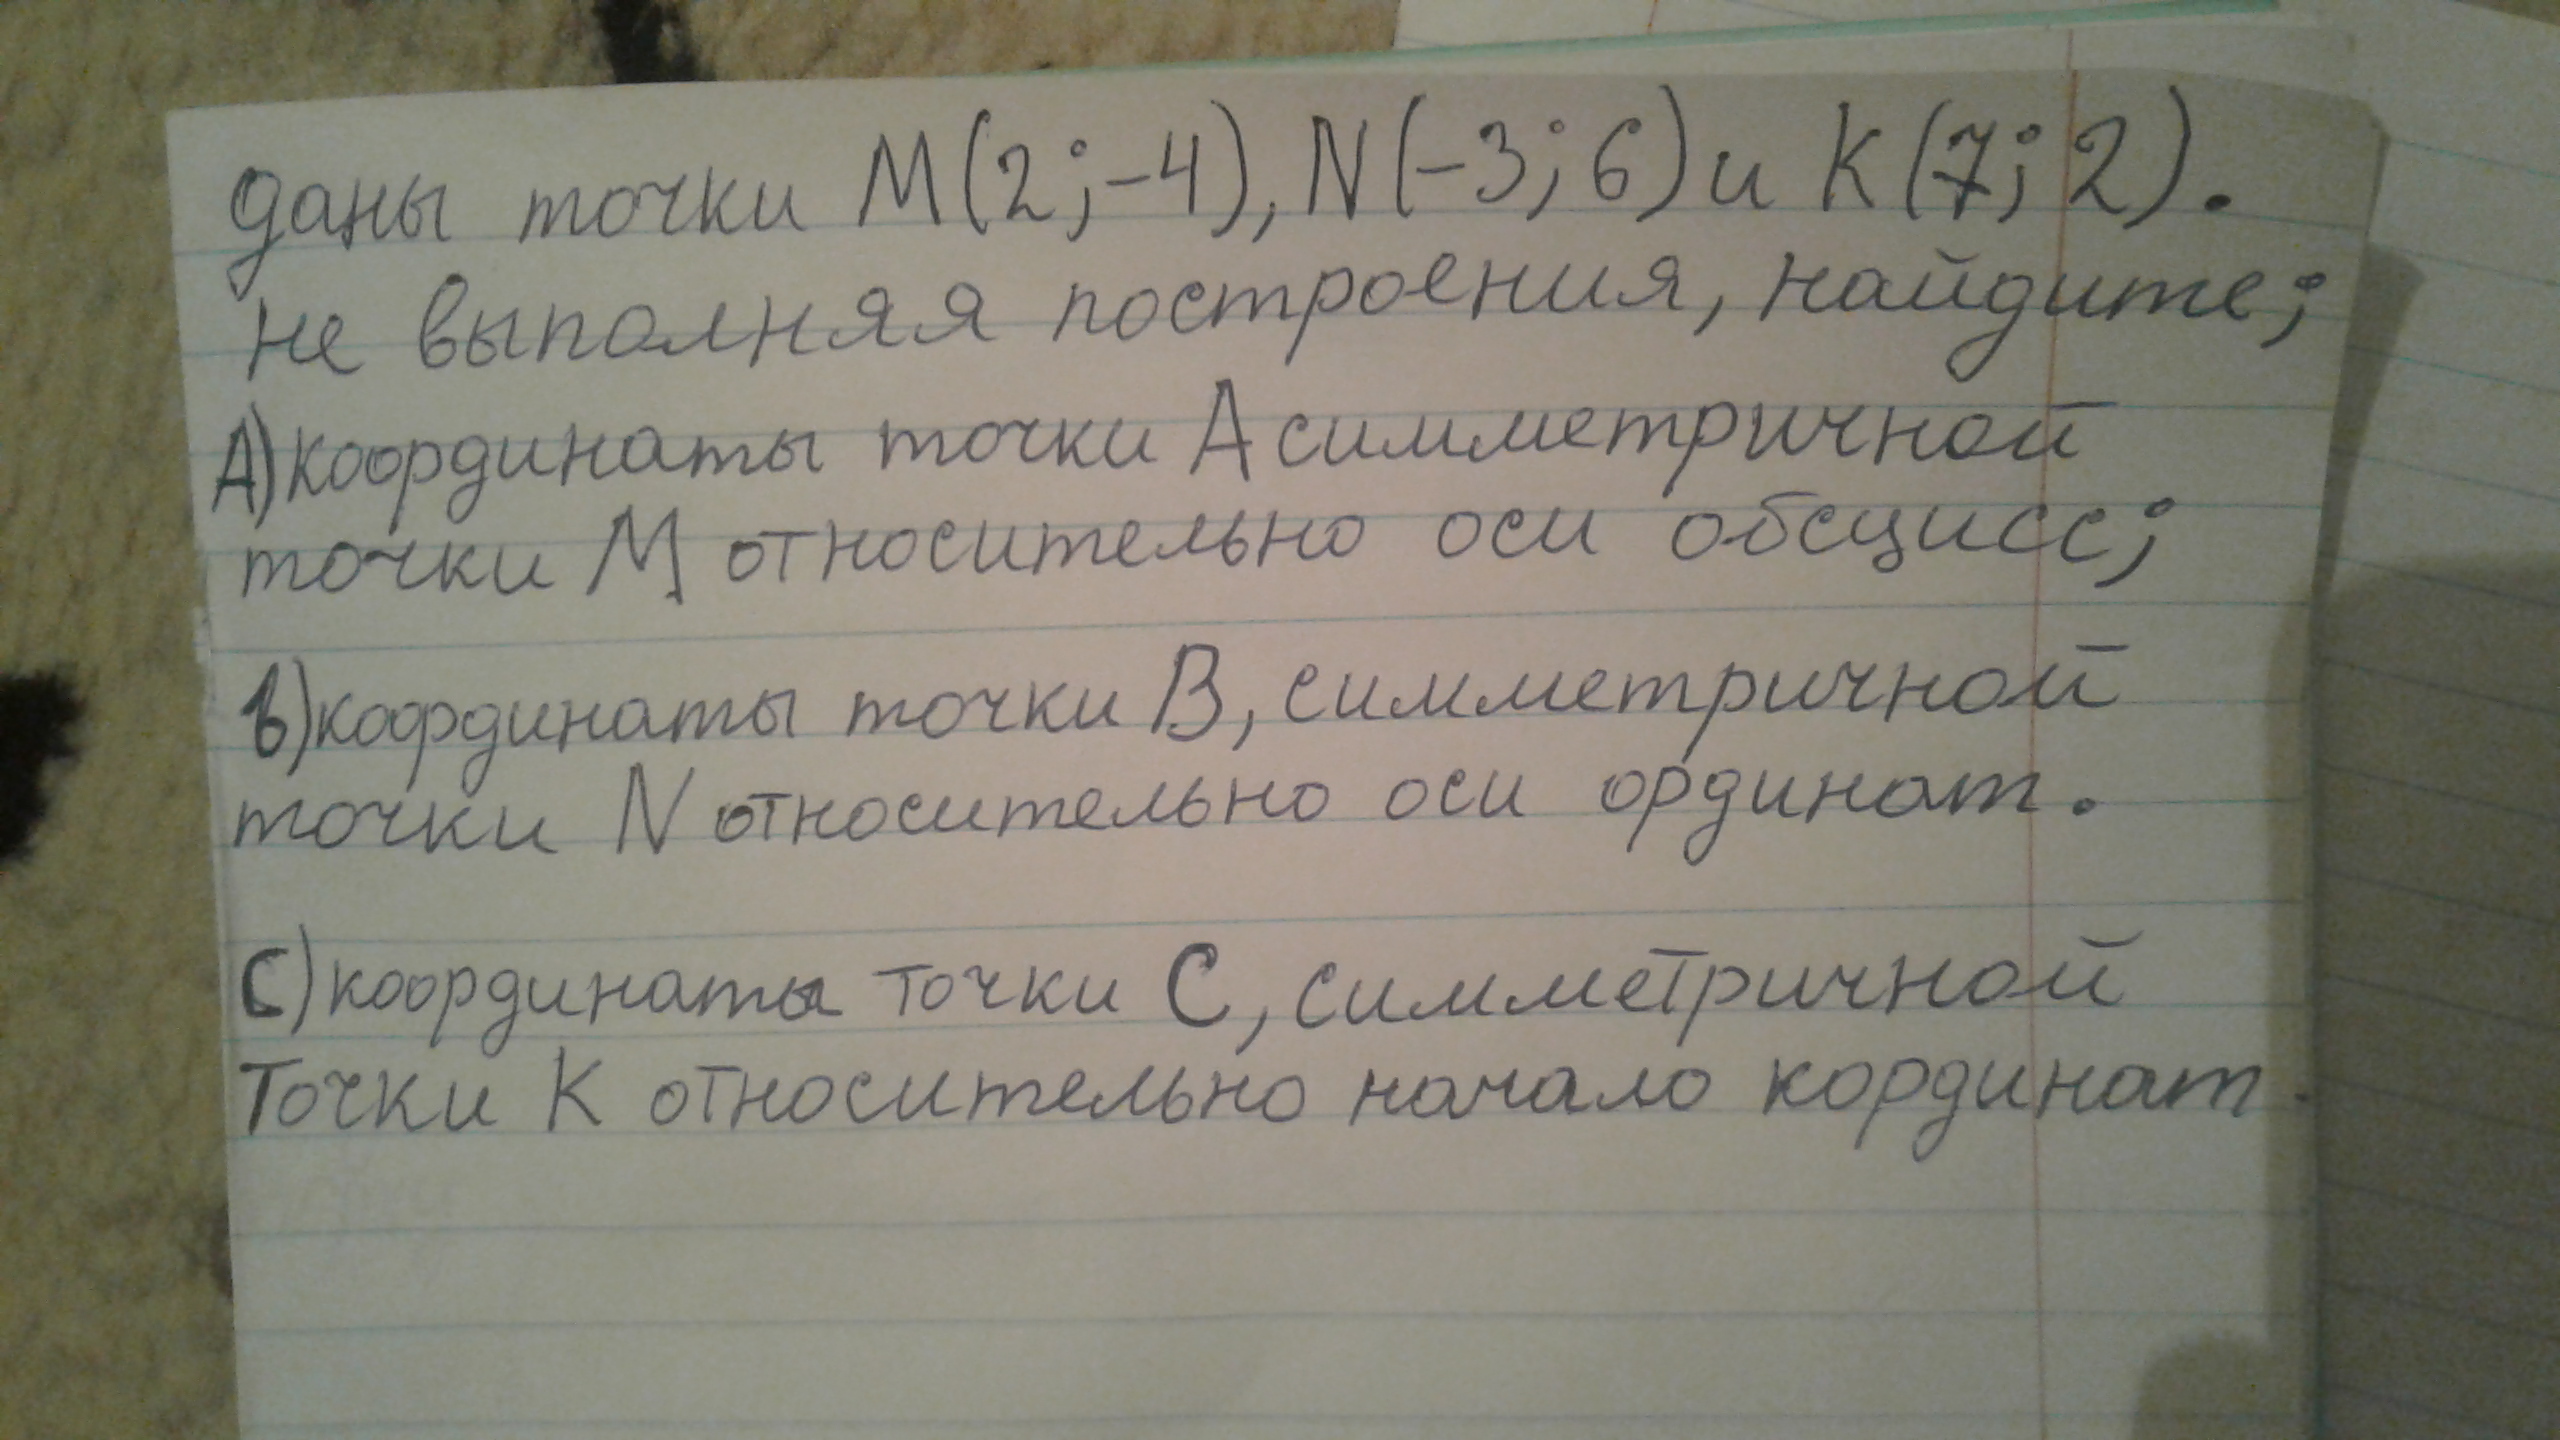 даны точки М(2;-4), N(-3;6) и К(7;2).
не выполняя построения, найдите;
А) координаты точки А симметричной
точки М относительно оси обсцисс;
в) координаты точки В, симметричной
точки N относительно оси ординат.
С) координаты точки С, симметричной
Точки К относительно начало кординат.